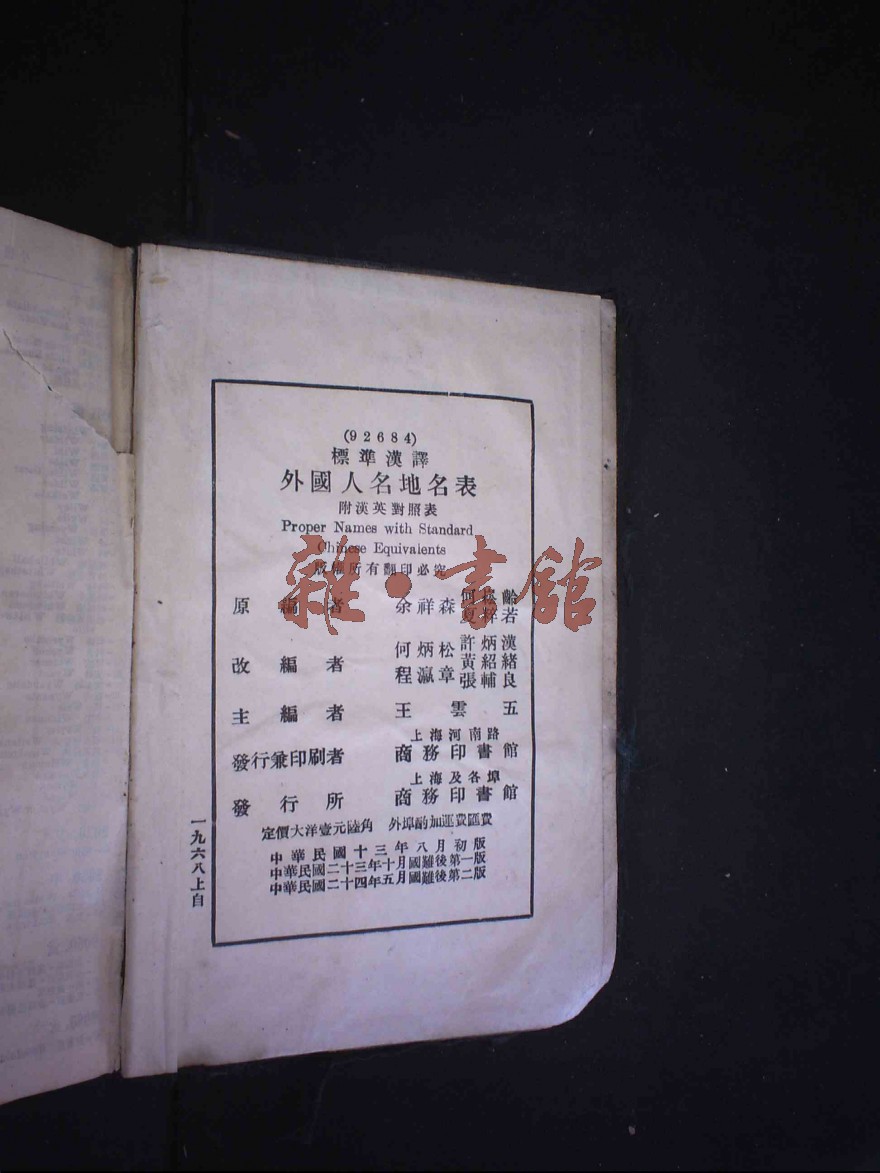 (92684)
標準漢譯
外國人名地名表
附漢英對照表
Proper Names with Standard
Chinese Equivalents
版權所有翻印必究
原編者 余祥森 何崧齡 夏粹若
改編者 何炳松 程瀛章 許炳漢 黃紹緒 張輔良
主編者 王雲五
上海河南路
發行兼印刷者 商務印書館
上海及各埠
發行所 商務印書館
定價大洋壹元陸角 外埠酌加運費匯費
中華民國十三年八月初版
中華民國二十三年十月國難後第一版
中華民國二十四年五月國難後第二版
一九六八上自
雜·書館